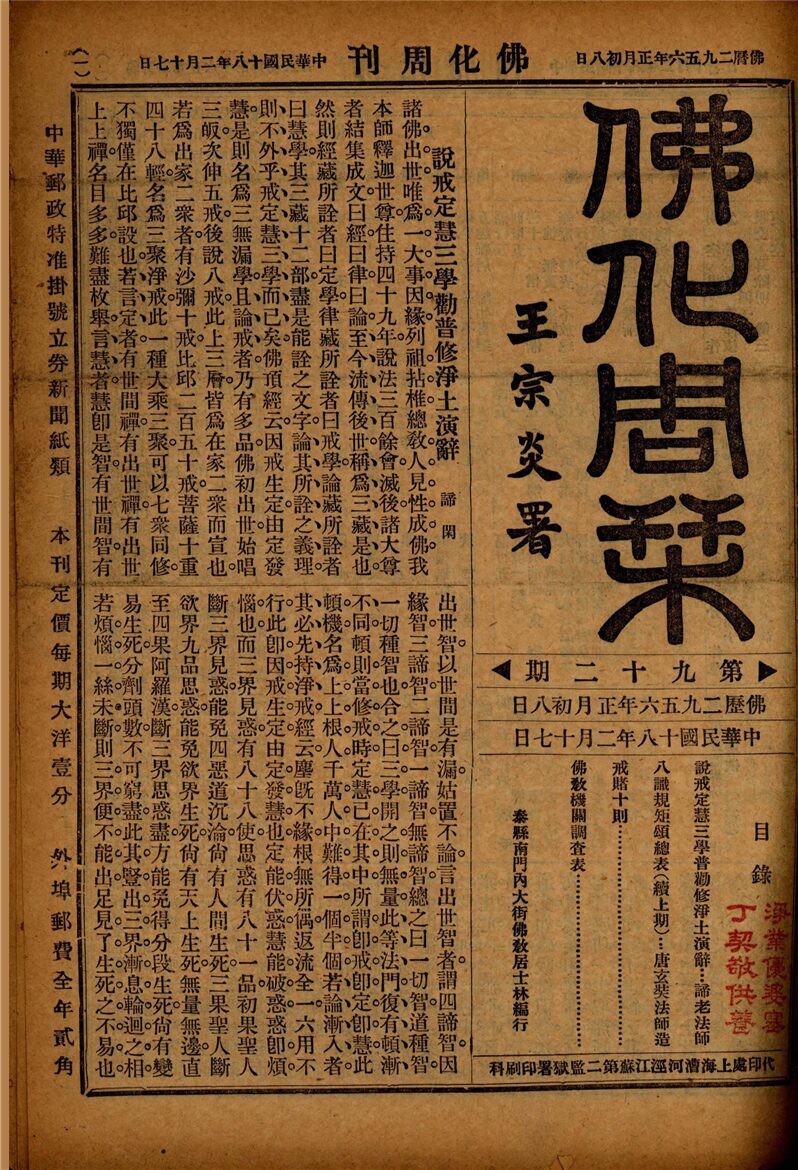 佛曆二九五六年正月初八日
佛化周刊
中華民國十八年二月十七日
(一)
佛化周栞
王宗炎署
第九十二期
佛歷二九五六年正月初八日
中華民國十八年二月十七日
目錄
說戒定慧三學普勸修淨土演辭…諦老法師
八識規矩頌總表(續上期)…唐玄奘法師造
戒賭十則…………
佛敎機關調查表…………
泰縣南門內大街佛敎居士林編行
淨業優婆塞
丁契敬供養
代印處上海漕河涇江蘇第二監獄署印刷科
說戒定慧三學勸普修淨土演辭 諦閑
諸佛出世唯爲一大事因緣列祖拈椎總敎人見性成佛我
本師釋迦世尊住持四十九年說法三百餘會滅後諸大尊
者結集成文曰經曰律曰論至今流傳後世稱爲三藏是也
然則經藏所詮者曰定學律藏所詮者曰戒學論藏所詮者
曰慧學其三藏十二部盡是能詮之文字論其所詮之義理
則不外乎戒定慧三學而已矣佛頂經云因戒生定由定發
慧是則名爲三無漏學且論戒者乃有多品佛初出世始唱
三皈次伸五戒後說八戒此上三層皆爲在家二衆而宣也
若爲出家二衆者有沙彌十戒比邱二百五十戒菩薩十重
四十八輕名爲三聚淨戒此一種大乘三聚可以七衆同修
不獨僅在比邱設也若言定者有世間禪有出世禪有出世
上上禪名目多多難盡枚舉言慧者慧卽是智有世間智有
出世智以世間是有漏姑置不論言出世智者謂四諦智因
緣智三諦智二諦智一諦智無諦智總之曰一切智道種智
一切種智也合之曰三學開之則無量此等法門復有頓漸
不同頓則當修戒時定慧已在其中所謂卽戒卽定卽慧此
頓機名爲上上根人千萬人中難得一個半個若論漸入者
其必先持淨戒經云塵旣不緣根無所偶返流全一六用不
行此卽因戒生定由定發慧也定能伏惑慧能破惑惑卽煩
惱也而三界見惑有八十八使思惑有八十一品初果聖人
斷三界見惑能免四惡道沉淪尙有人間生死三果聖人斷
欲界九品思惑能免欲界生死尙有天上生死無量無邊直
至四果阿羅漢斷三界思惑盡方能免得分段生死尙有變
易生死分劑頭數不可窮盡此其豎出三界漸息輪迴之相
若煩惱一絲未斷則三界便不能出足見了生死之不易也
中華郵政特准掛號立券新聞紙類 本刊定價每期大洋壹分 外埠郵費全年貳角